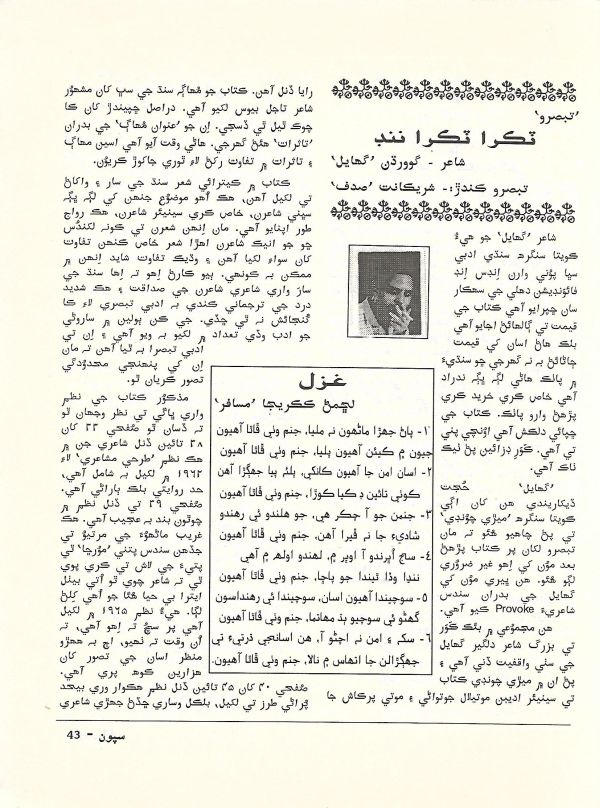 ’تبصرو‘
ٽڪرا ٽڪرا ننڊ
شاعر - گوورڌن ’گھايل‘
تبصرو ڪندڙ:- شريڪانت ’صدف‘
شاعر ’گھايل‘ جو هيءُ
ڪويتا سنگرهه سنڌي ادبي
سڀا پوڻي وارن اِنڊس اِنڊ
فائونڊيشن دهلي جي سهڪار
سان ڇپرايو آهي ڪتاب جي
قيمت تي ڳالهائڻ اجايو آهي
بلڪ هاڻ اسان کي قيمت
ڄاڻائڻ به نه گهرجي ڇو سنڌيءَ
۾ پالڪ هاڻي لڳ ڀڳ ندارد
آهي خاص ڪري خريد ڪري
پڙهڻ وارو پالڪ. ڪتاب جي
ڇپائي دلڪش آهي اوچتي پني
تي آهي. ڪَوَر ڊزائين پڻ ٺيڪ
ٺاڪ آهي.
’گھايل‘ حُجت
ڏيکاريندي هن کان اڳي
ڪويتا سنگرهه ’ميڙي چونڊي‘
تي پڻ چاهيو هئو ته مان
تبصرو لکان پر ڪتاب پڙهڻ
بعد مؤن کي اِهو غير ضروري
لڳو هئو. هن ڀيري مؤن کي
گھايل جي بدران سندس
شاعريءَ Provoke ڪيو آهي.
هن مجموعي ۾ بئڪ ڪَوَر
تي بزرگ شاعر دلگير گھايل
جي سٺي واقفيت ڏني آهي ۽
پڻ ان ۾ ميڙي چونڊي ڪتاب
تي سينيئر اديبن موتيلال جوتواڻي ۽ موتي پرڪاش جا
رايا ڏنل آهن. ڪتاب جو مُهاڳ سنڌ جي سڀ کان مشهؤر
شاعر تاجل بيوس لکيو آهي. دراصل ڇپيندڙ کان ڪا
چوڪ ٿيل ٿي ڏسجي. اِن جو ’عنوان مُهاڳ‘ جي بدران
’تاثرات‘ هئڻ گهرجي. هاڻي وقت آيو آهي اسين مهاڳ
۽ تاثرات ۾ تفاوت رکڻ لاءِ ٿوري جاکوڙ ڪريؤن.
ڪتاب ۾ ڪيترائي شعر سنڌ جي سار ۽ واکاڻ
تي لکيل آهن، هڪ اهو موضوُع جنهن کي لڳ ڀڳ
سڀني شاعرن، خاص ڪري سينيئر شاعرن، هڪ رواج
طور اپنايو آهي. مان اِنهن شعرن تي ڪونه لکندُس
ڇو جو انيڪ شاعرن اهڙا شعر خاص ڪنهن تفاوت
کان سواءِ لکيا آهن ۽ وڌيڪ تفاوت شايد اِنهن ۾
ممڪن به ڪونهي. ٻيو ڪارڻ اِهو ته اِها سنڌ جي
سارَ واري شاعري شاعرن جي صداقت ۽ هڪ شديد
درد جي ترجماني ڪندي به ادبي تبصري لاءِ ڪا
گنجائش نه ٿي ڇڏي. جي ڪن ٻولين ۾ ساروڻي
جو ادب وڏي تعداد ۾ لکيو به ويو آهي ۽ اِن تي
ادبي تبصرا به ٿيا آهن ته مان
اِن کي پنهنجي محدودگي
تصور ڪريان ٿو.
مذڪور ڪتاب جي نظم
واري ڀاڱي تي نظر وجهان ٿو
ته ڏسان ٿو صفحي ۲۲ کان
۳۸ تائين ڏنل شاعري جن ۾
هڪ نظم ’طرحي مشاعري‘ لاءِ
۱۹۶۲ ۾ لکيل به شامل آهي،
حد روايتي بلڪ ٻاراڻي آهي.
صفحي ۳۹ تي ڏنل نظم ۾
چوٿون بند به عجيب آهي. هڪ
غريب ماڻهوءَ جي مرتيؤ تي
جڏهن سندس پتني ’مؤرڇا‘ ٿي
پتيءَ جي لاش تي ڪري پوي
ٿي ته شاعر چوي ٿو اُتي بيٺل
ايترا بي حيا هئا جو آهي کلڻ
لڳا. هيءُ نظم ۱۹۶۵ ۾ لکيل
آهي پر سچُ ته اهو آهي، ته
اُن وقت ته نهيو، اڄ به هہڙو
منظر اسان جي تصور کان
هزارين ڪوهه پري آهي.
صفحي ۴۰ کان ۴۵ تائين ڏنل نظم هڪوار وري بيحد
پُراڻي طرز تي لکيل، بلڪل وساري ڇڏڻ جهڙي شاعري
غزل
لڇمڻ ڪڪريجا ’مسافر‘
۱- پاڻ جهڙا ماڻهون نه مليا، جنم وٺي ڦاٿا آهيون
جيون ۾ ڪيئن آهيون پليا، جنم وٺي ڦاٿا آهيون
۲- اسان امن جا آهيون ڪانکي، پلئہ پيا جھڳڙا آهن
ڪوئي ناهين ڍڪيا ڪوڙا، جنم وٺي ڦاٿا آهيون
۳- جنمن جو آ چڪر هي، جو هلندو ئي رهندو
شاديءَ جا نه ڦيرا آهن، جنم وٺي ڦاٿا آهيون
۴- سڄ اُڀرندو آ اوڀر ۾، لهندو اولهہ ۾ آهي
ننڍا وڏا ٿيندا جو پاڇا، جنم وٺي ڦاٿا آهيون
۵- سوچيندا آهيون اسان، سوچيندا ئي رهنداسون
گھڻو ئي سوچيو ٻڌ مهانما، جنم وٺي ڦاٿا آهيون
۶- سک ۽ امن نہ اچڻو آ، هن اسانجي ڌرتيءَ تي
جھڳڙالن جا اتهاس ۾ نالا، جنم وٺي ڦاٿا آهيون.
سپون - 43